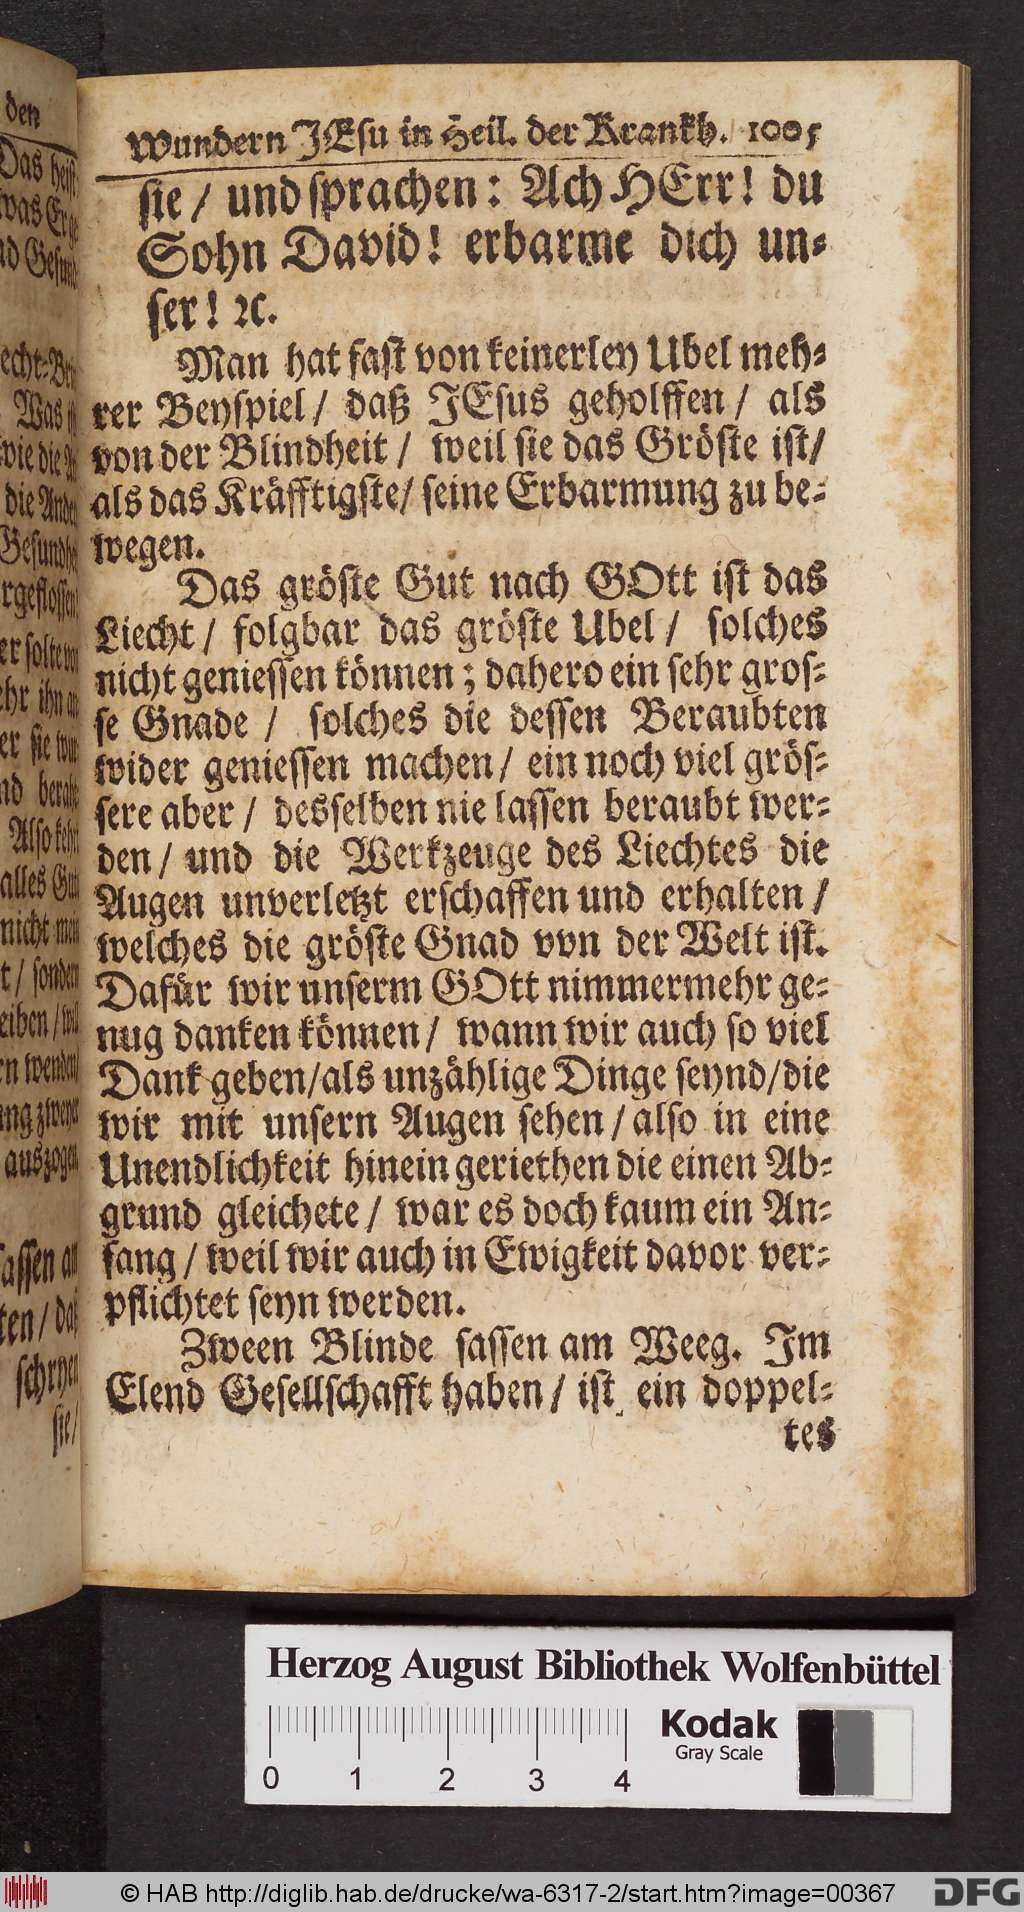 den
Das heist
was Er ge
nd Gesund
echt-Br
Was
wie die
die Ande
Gesundhe
rgeflossen
er solte von
ehr ihn an
er sie wur
nd berah
Also kehr
alles Gut
nicht mein
t / sondern
eiben / weil
rn wenden
ung zweyer
auszogen
sassen am
ten / daß
schryen
sie /
Wundern JEsu in Heil. der Krankh. 1005
sie / und sprachen: Ach HErr! du
Sohn David! erbarme dich un-
ser! ꝛc.
Man hat fast von keinerley Ubel meh-
rer Beyspiel / daß JEsus geholffen / als
von der Blindheit / weil sie das Gröste ist /
als das Kräfftigste / seine Erbarmung zu be-
wegen.
Das gröste Gut nach GOtt ist das
Liecht / folgbar das gröste Ubel / solches
nicht geniessen können; dahero ein sehr gros-
se Gnade / solches die dessen Beraubten
wider geniessen machen / ein noch viel grös-
sere aber / desselben nie lassen beraubt wer-
den / und die Werkzeuge des Liechtes die
Augen unverletzt erschaffen und erhalten /
welches die gröste Gnad vvn der Welt ist.
Dafür wir unserm GOtt nimmermehr ge-
nug danken können / wann wir auch so viel
Dank geben / als unzählige Dinge seynd / die
wir mit unsern Augen sehen / also in eine
Unendlichkeit hinein geriethen die einen Ab-
grund gleichete / war es doch kaum ein An-
fang / weil wir auch in Ewigkeit davor ver-
pflichtet seyn werden.
Zween Blinde sassen am Weeg. Im
Elend Gesellschafft haben / ist ein doppel-
tes
Herzog August Bibliothek Wolfenbüttel
0 1 2 3 4
Kodak
Gray Scale
© HAB http://diglib.hab.de/drucke/wa-6317-2/start.htm?image=00367
DFG